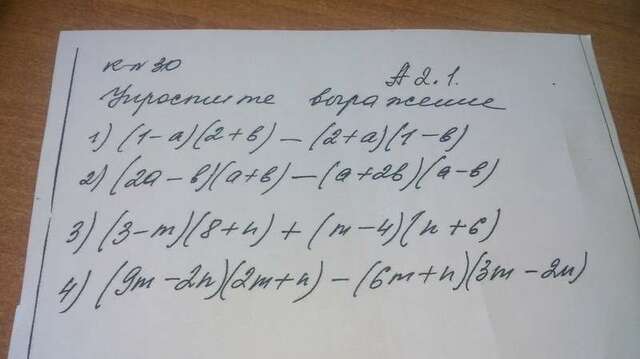 к-п 30
А 2.1.
Упростите выражение
1) (1-а)(2+в) - (2+а)(1-в)
2) (2а-в)(а+в) - (а+2в)(а-в)
3) (3-m)(8+n) + (m-4)(n+6)
4) (9m-2n)(2m+n) - (6m+n)(3m-2n)